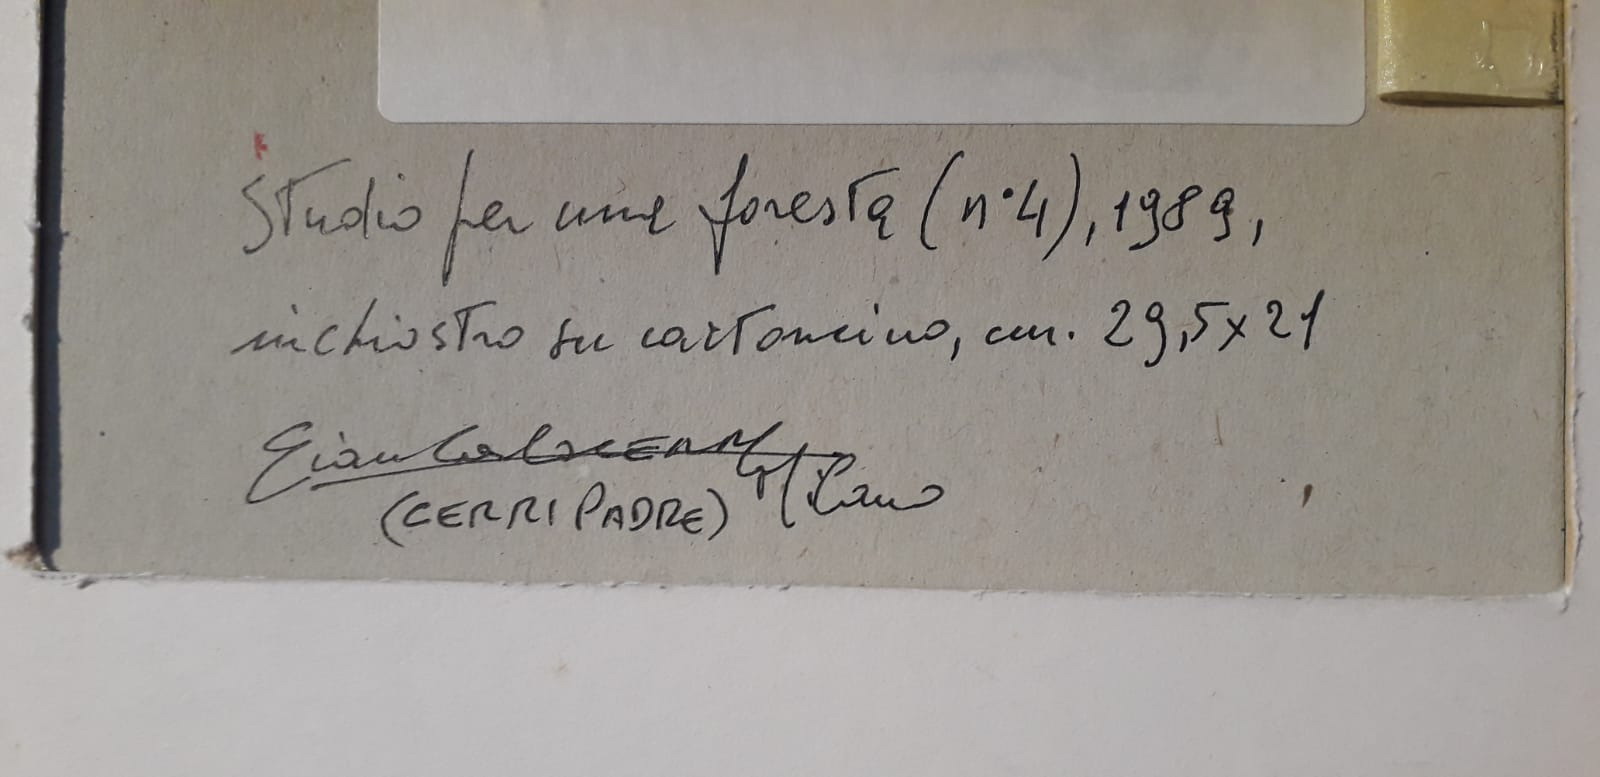 Studio per una foresta (n° 4), 1989,
inchiostro su cartoncino, cm. 29,5 x 21
Giancarlo CERRI
(CERRI PADRE) Milano